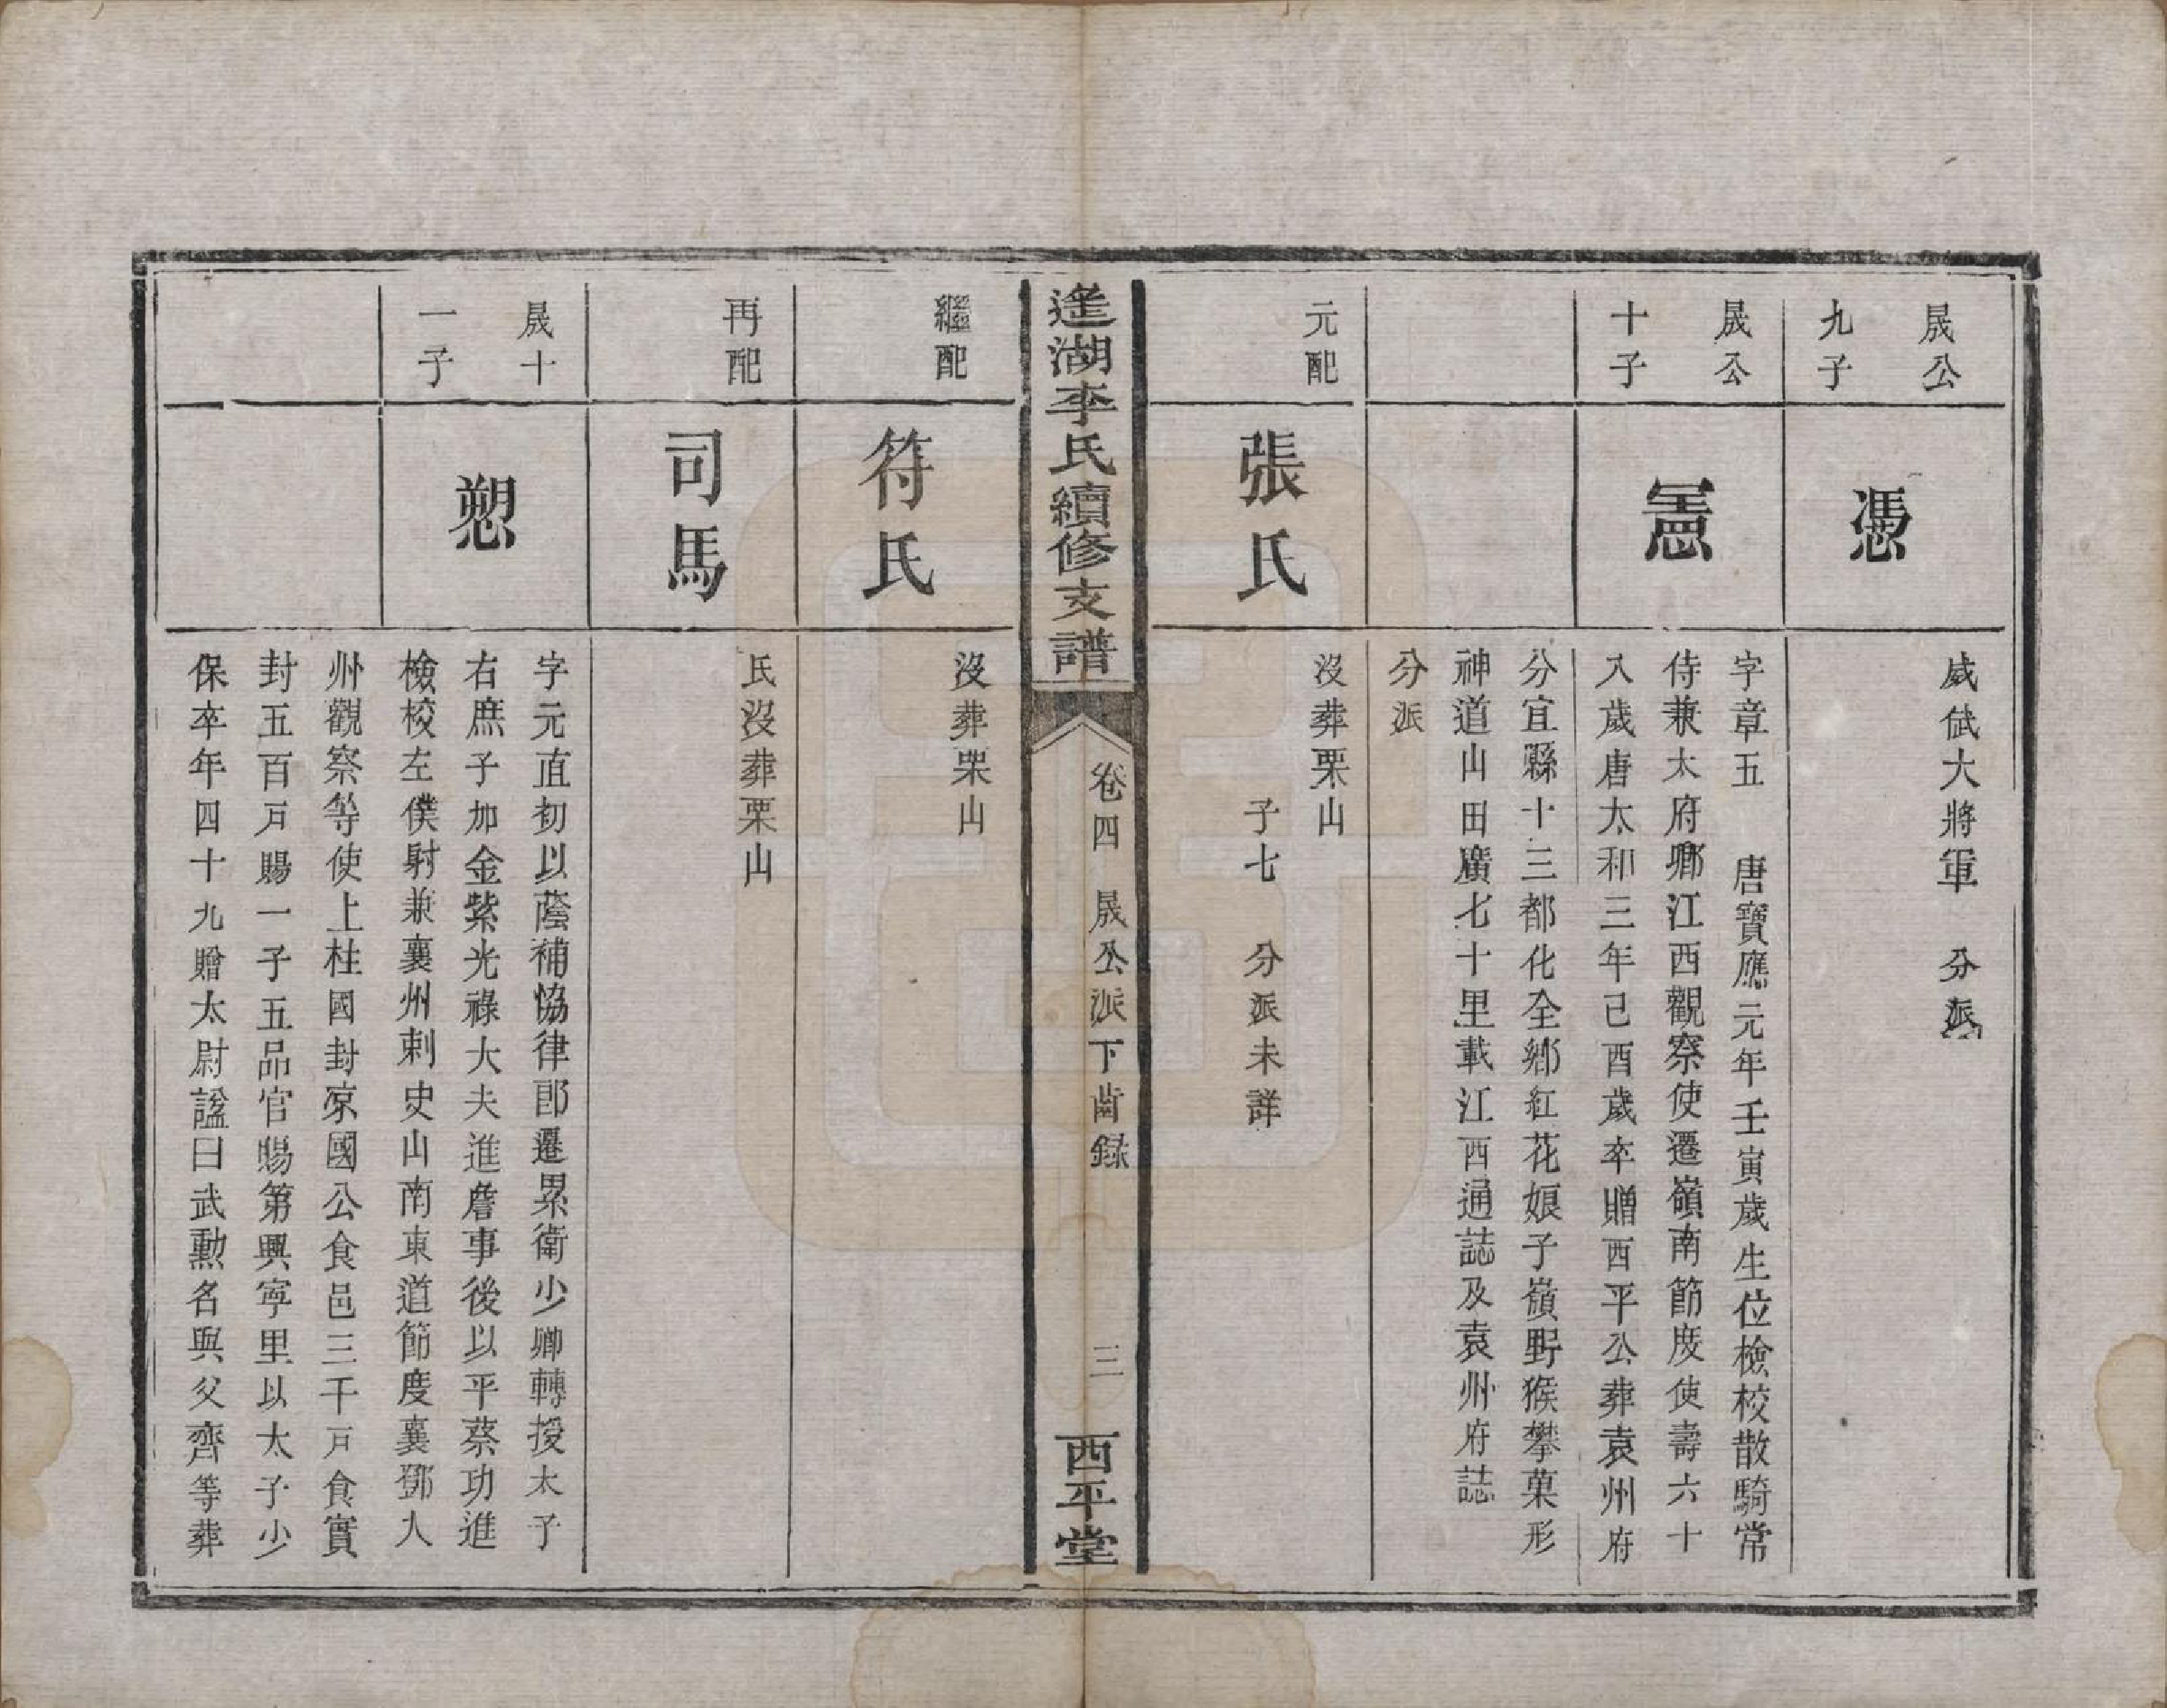 晟公
九子
憑
威武大將軍　分派
晟公
十子
憲
字章五　唐寶應元年壬寅歲生位檢校散騎常
侍兼太府卿江西觀察使遷嶺南節度使壽六十
八歲唐太和三年己酉歲卒贈西平公葬袁州府
分宜縣十三都化全鄉紅花娘子嶺野猴攀菓形
神道山田廣七十里載江西通誌及袁州府誌
分派
元配
張氏
沒葬栗山
子七　分派未詳
遙湖李氏續修支譜
卷四　晟公派下齒録
三
西平堂
繼配
符氏
沒葬栗山
再配
司馬
氏沒葬栗山
晟十
一子
愬
字元直初以蔭補協律郎遷累衛少卿轉授太子
右庶子加金紫光祿大夫進詹事後以平蔡功進
檢校左僕射兼襄州刺史山南東道節度襄鄧人
州觀察等使上柱國封凉國公食邑三千戶食實
封五百戶賜一子五品官賜第興寧里以太子少
保卒年四十九贈太尉諡曰武勲名與父齊等葬